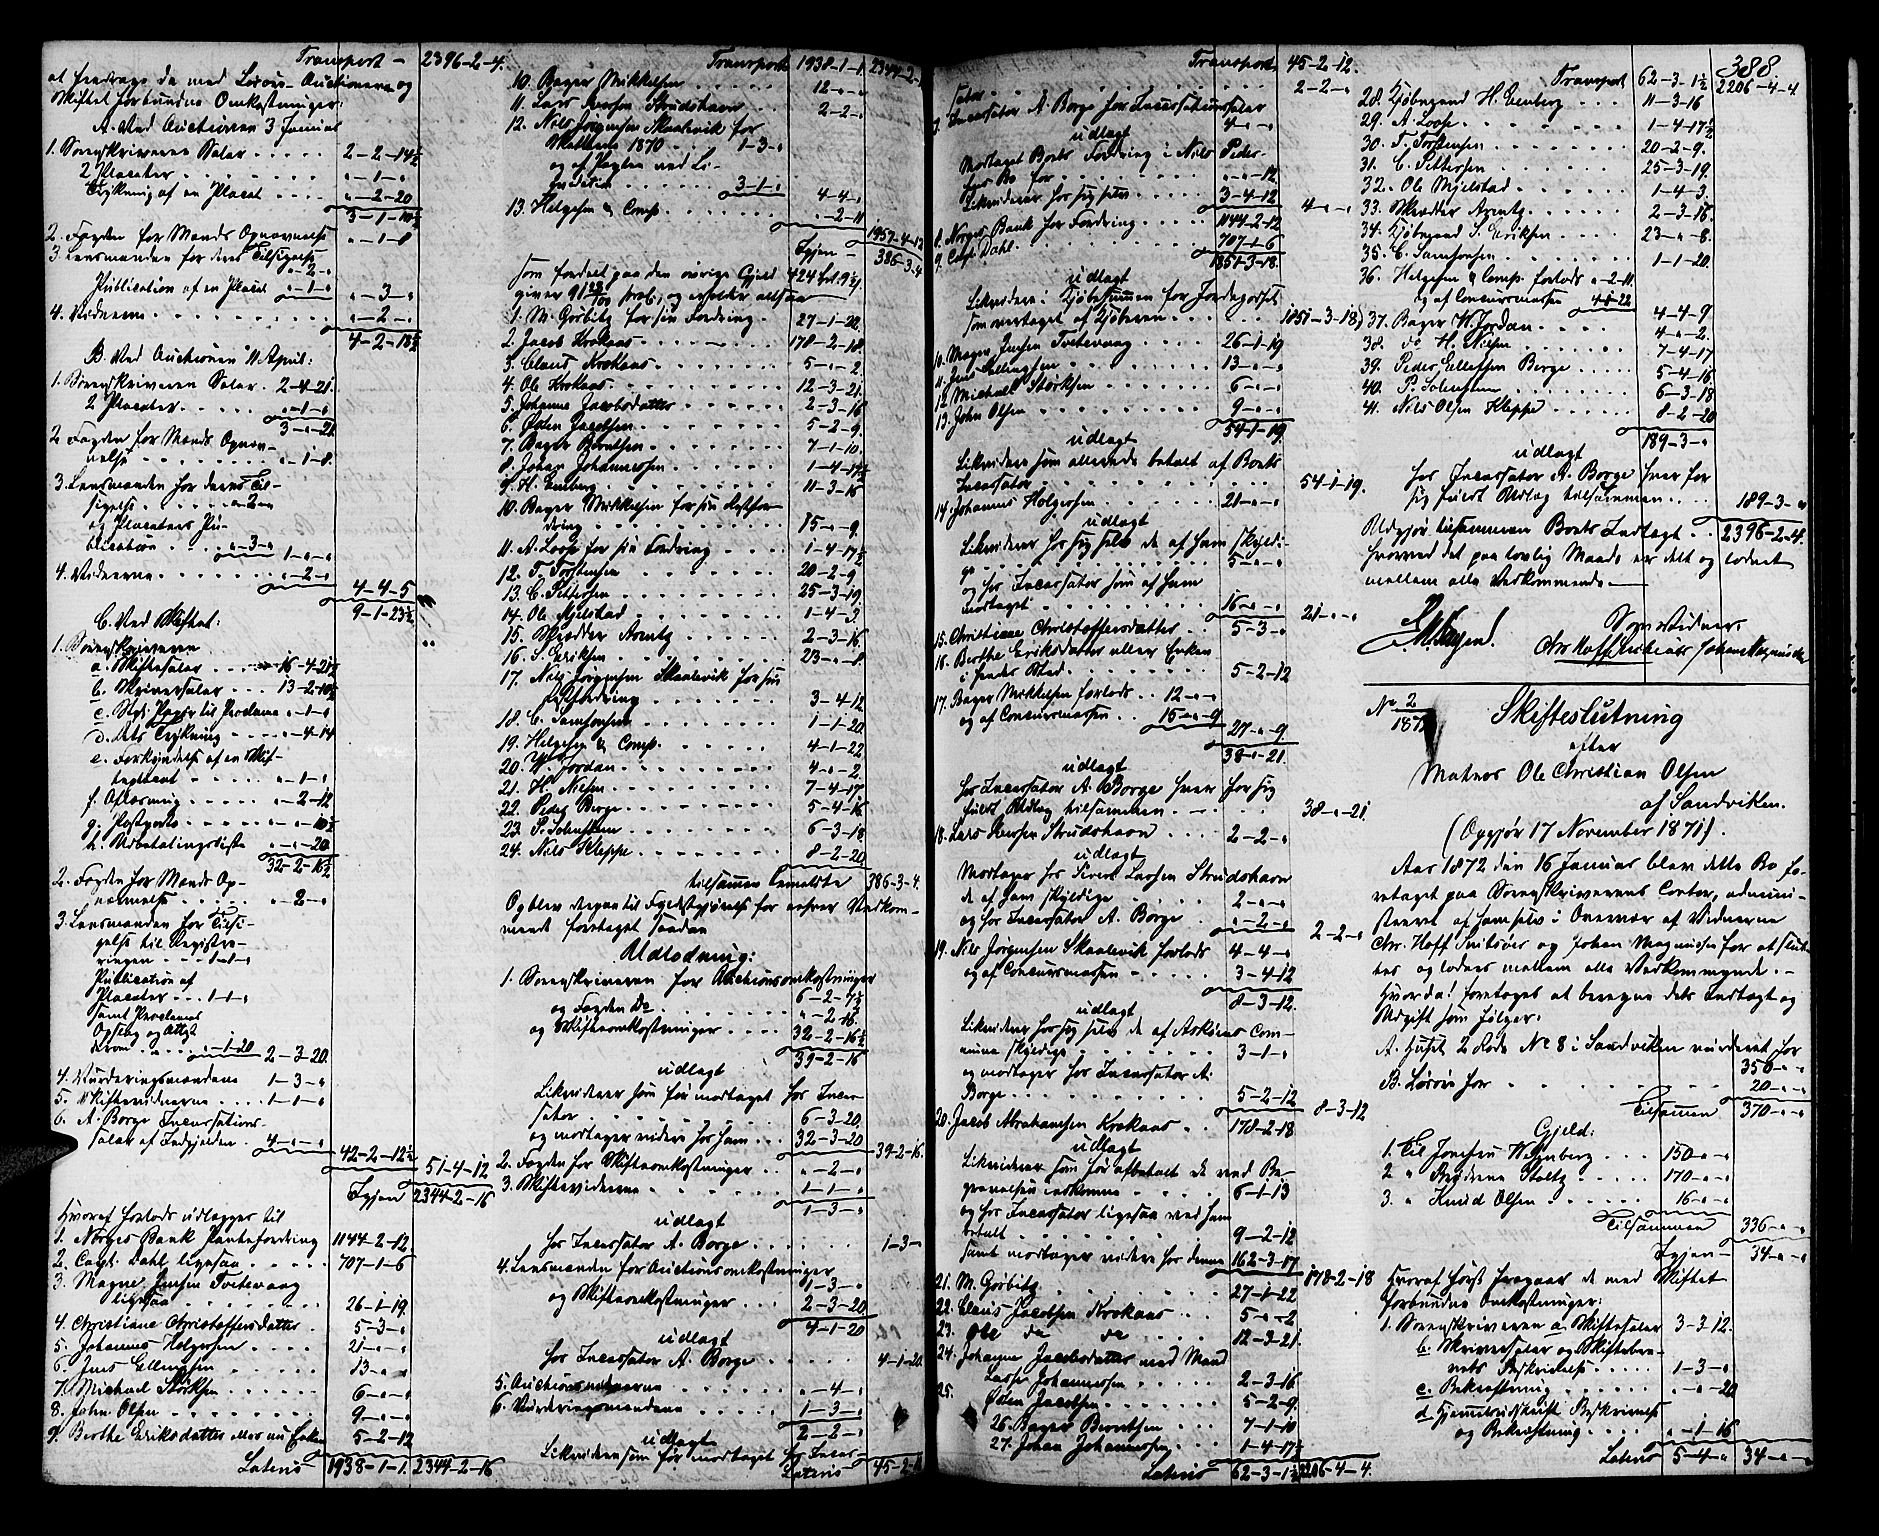 Transport - 2396-2-4.
at fradrage de med Løsøre-Auctionerne og
Skiftet forbundne Omkostninger:
A. Ved Auctionen 3 Januar
1. Sorenskriveren Salar . . . . 2-2-14½
2 Placater . . . . "-1-"
Trykning af en Placat . . "-2-20
3-1-10½
2. Fogden for Mænds Opnævnelse "-1-8
3. Lensmanden for deres Tilsigelse
"-2-"
Publication af en Placat "-1-" "-3-"
4. Vidnerne . . . . . "-2-"
4-2-18½
B. Ved Auctionen 11 April:
1. Sorenskriveren Salar . 2-4-21.
2 Placater . . . . "-1-"
3-"-21.
2. Fogden for Mænds Opnæv-
nelse . . . . "-1-8.
3. Lensmanden for deres Til-
sigelse . . "-2-"
og Placaters Pu-
blication . . "-3-" 1-"-"
4. Vidnerne . . . . "-2-"
4-4-5
9-1-23½
C. Ved Skiftet:
1. Sorenskriveren
a. Skiftesalar . . . 16-4-21½
b. Skriversalar . . . 13-2-10½
c. Stpl. Papir til Proclama "-1-"
d. Dets Trykning . . . "-4-14
e. Forkyndelse af en Skif-
tagtent . . . "-1-"
f. Aflæsning . . . "-2-12
g. Postporto . . . "-"-10½
h. Udbetalingsliste "-"-20
32-2-16½
2. Fogden for Mænds Op-
nævnelse . . . "-2-"
3. Lensmanden for Tilsi-
gelse til Registre-
ringen . . . 1-1-"
Publication af
Placater . . . 1-1-"
samt Proclamas
Opslag og Attest
derom . . . "-1-20 2-3-20.
4. Vurderingsmændene 1-3-"
5. Skiftevidnerne . . 1-1-"
6. A. Borge Incassations-
salar af Indgjælden . 4-"-"
42-2-12½ 51-4-12
Igjen 2344-2-16
Hvoraf forlods udlægges til
1. Norges Bank Pantefordring 1144-2-12
2. Capt. Dahl ligesaa . . . . 707-1-6
3. Magne Jensen Tvetevaag
ligesaa . . . . . 26-1-19.
4. Christiane Christoffersdatter . 5-3-"
5. Johannes Holgersen . . . . 21-"-"
6. Jens Ellingsen . . . . 13-"-"
7. Michael Størksen . . . . 6-"-"
8. John Olsen . . . . 9-"-"
9. Berthe Eriksdatter eller nu Enken 5-2-12
Lateris 1938-1-1. 2344-2-16
Transport 1938-1-1. 2344-2-16
10. Bager Mikkelsen . . . . 12-"-"
11. Lars Iversen Strudshavn . . 2-2-"
12. Nils Jørgensen Skaalevik for
Skatterne 1870 . . 1-3-"
og af Pagten ved Li-
. . . . 3-1-" 4-4-"
13. Helgesen & Comp. . . . . "-2-11
1957-4-12
Igjen - 386-3-4.
som fordeelt paa den øvrige Gjeld 424
giver og erholder altsaa
1. M. Gørbitz for sin Fordring . 27-1-22.
2. Jacob Krokaas . . . . 178-2-18.
3. Claus Krokaas . . . . 5-"-2
4. Ole Krokaas . . . . 12-3-21.
5. Johanne Jacobsdatter . . . 2-3-16
6. Østen Jacobsen . . . . 5-2-9.
7. Bager Berntsen . . . . 7-1-10.
8. Johan Johannessen . . . . 1-4-17½
9. H. Enberg . . . . 11-3-16
10. Bager Mikkelsen for sin Restfor-
dring . . . . 15-"-9.
11. A. Loose for sin Fordring . . . 1-4-17½
12. T. Torstensen . . . . 20-2-9.
13. C. Pettersen . . . . 25-3-19
14. Ole Mjelstad . . . . 1-4-3.
15. Skrædder Arentz . . . . 2-3-16
16. S. Eriksen . . . . 23-"-8
17. Nils Jørgensen Skaalevik for sin
Restfordring . . . . 3-4-12
18. C. Samsonsen . . . . 1-1-20.
19. Helgesen & Comp. . . . . 4-1-22
20. W. Jordan . . . . 4-"-2.
21. H. Nielsen . . . . 7-4-17
22. Peder Berge . . . . 5-4-16
23. P. Solensteen . . . . 6-3-18
24. Nils Kleppe . . . . 8-2-20.
tilsammen bemeldte 386-3-4.
Og blev derpaa til Fyldestgjørelse for enhver Vedkom-
mende foretaget saadan
Udlodning:
1. Sorenskriveren for Auctionsomkostninger
6-2-7½
og Fogden Do . . . . "-2-16.
og Skifteomkostninger . . . 32-2-16½
39-2-16
udlagt
Likviderer som før modtaget hos Incas-
sator . . . . 6-3-20.
og modtager videre hos ham . . 32-3-20 39-2-16.
2. Fogden for Skifteomkostninger . "-2-"
3. Skiftevidnerne . . . . 1-1-"
1-3-"
udlagt
hos Incassator A. Borge . . . . 1-3-"
4. Lensmanden for Auctionsomkostninger
1-3-"
og Skifteomkostninger . . 2-3-20
4-1-20
udlagt
hos Incassator A. Borge . . . . 4-1-20.
5. Auctionsvidnerne . . . . "-4-"
6. Vurderingsmændene . . . . 1-3-"
2-2-"
udlagt
Likviderer som før modtaget hos Incas-
Lateris 45-2-12
Transport, 45-2-12.
sator . . . . 2-2-"
7. Incassator A. Borge for Incassationssalar
4-"-"
udlagt
Modtaget Boets Fordring i Nils Peder-
sens Bo for . . . . "-"-12
Likviderer hos sig selv . . . . 3-4-12
4-"-"
8. Norges Bank for Fordring . . . 1144-2-12
9. Capt. Dahl . . . . 707-1-6
1851-3-18.
udlagt
Likviderer i Kjøbesummen for Jordegodset
som overtaget af Kjøberen . . . . 1851-3-18
10. Magne Jensen Tvetevaag . . . 26-1-19
11. Jens Ellingsen . . . . 13-"-"
12. Michael Størksen . . . . 6-"-"
13. John Olsen . . . . 9-"-"
54-1-19.
udlagt
Likviderer som allerede betalt af Boets
Incassator . . . . 54-1-19.
14. Johannes Holgersen . . . . 21-"-"
udlagt
Likviderer hos sig selv de af ham skyldi-
ge . . . . 5-"-"
og hos Incassator som af ham
modtaget . . . . 16-"-" 21-"-"
15. Christiane Christoffersdatter . 5-3-"
16. Berthe Eriksdatter eller Enken
i hendes Sted . . . . 5-2-12
17. Bager Mikkelsen forlods . . 12-"-"
og af Concursmassen . . 15-"-9
27-"-9.
38-"-21.
udlagt
hos Incassator A. Borge hver for sig
fuldt Udlæg tilsammen . . . . 38-"-21.
18. Lars Iversen Strudshavn . . . 2-2-"
udlagt
Modtager hos Sivert Larsen Strudshavn
de af ham skyldige . . . 2-"-"
og hos Incassator A. Borge . "-2-" 2-2-"
19. Nils Jørgensen Skaalevik forlods 4-4-"
og af Concursmassen . . . 3-4-12
8-3-12.
udlagt
Likviderer hos sig selv de af Askøens Com-
mune skyldige . . . . 3-1-"
og modtager hos Incassator A.
Borge . . . . 5-2-12 8-3-12
20. Jacob Abrahamsen Krokaas . . 178-2-18
udlagt
Likviderer som før afbetalt de ved Be-
gravelsen indkomne . . . . 6-1-13
og hos Incassator ligesaa ved ham
betalt . . . . 9-2-12
samt modtager videre hos denne 162-3-17
178-2-18
21. M. Gørbitz . . . . 27-1-22
22. Claus Jacobsen Krokaas . . . 5-"-2
23. Ole do do . . . 12-3-21.
24. Johanne Jacobsdatter med Mand
Lasse Johannessen . . . . 2-3-16
25. Østen Jacobsen . . . . 5-2-9.
26. Bager Berntsen . . . . 7-1-10
27. Johan Johannessen . . . . 1-4-17½
Lateris 62-3-1½ 2206-4-4.
388
Transport 62-3-1½ 2206-4-4
28. Kjøbmand H. Enberg . . . 11-3-16
29. A. Loose . . . . 1-4-17½
30. T. Torstensen . . . . 20-2-9.
31. C. Pettersen . . . . 25-3-19.
32. Ole Mjelstad . . . . 1-4-3.
33. Skrædder Arentz . . . . 2-3-16.
34. Kjøbmand S. Eriksen . . . 23-"-8.
35. C. Samsonsen . . . . 1-1-20.
36. Helgesen & Comp. forlods "-2-11.
og af Concursmassen 4-1-22
4-4-9
37. Bager W. Jordan . . . . 4-"-2.
38. do H. Nielsen . . . . 7-4-17
39. Peder Ellefsen Berge . . . 5-4-16
40. P. Solensteen . . . . 6-3-18
41. Nils Olsen Kleppe . . . 8-2-20
189-3-"
udlagt
hos Incassator A. Borge hver for
sig fuldt Udlæg tilsammen . . . 189-3-"
Udgjør tilsammen Boets Indtægt . . 2396-2-4.
hvorved det paa lovlig Maade er delt og lodnet
mellem alle Vedkommende.
Som Vidner:
Chr. Hoff Snitøver Johan Magnussen
No 2
187
Skifteslutning
efter
Matros Ole Christian Olsen
af Sandviken.
(Opgjør 17 November 1871).
Aar 1872 den 16 Januar blev dette Bo fo-
retaget paa Sorenskriverens Contor, admini-
streret af ham selv i Overvær af Vidnerne
Chr. Hoff Snitøver og Johan Magnussen for at slut-
tes og lodnes mellem alle Vedkommende. -
Hvorda! foretoges at beregne dets Indtægt og
Udgift som følger:
A. Huset 2 Rode No 8 i Sandviken vurderet for
350-"-"
B. Løsøre for . . . . 20-"-"
Tilsammen 370-"-"
Gjeld:
1. Til Josefsen Wesenberg . . . 150-"-"
2 " Stoltz . . . . 170-"-"
3. " Knud Olsen . . . . 16-"-"
Tilsammen 336-"-"
Igjen - 34-"-"
Hvoraf først fragaar de med Skiftet
forbundne Omkostninger:
1. Sorenskriveren a. Skiftesalar 3-3-12.
b. Skriversalar og Skiftebre-
vets Beskrivelse . . . . 1-3-"
c. Bekræftning . . . . "-"-20
d. Hjemmelsskrift Beskrivelse
og Bekræftning . . . . "-1-16
Lateris 5-4-" 34-"-"